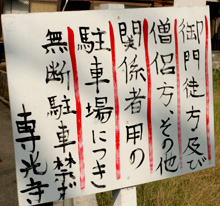 御門徒方及び
僧侶方、その他
関係者用の
駐車場につき
無断駐車禁ず
専光寺